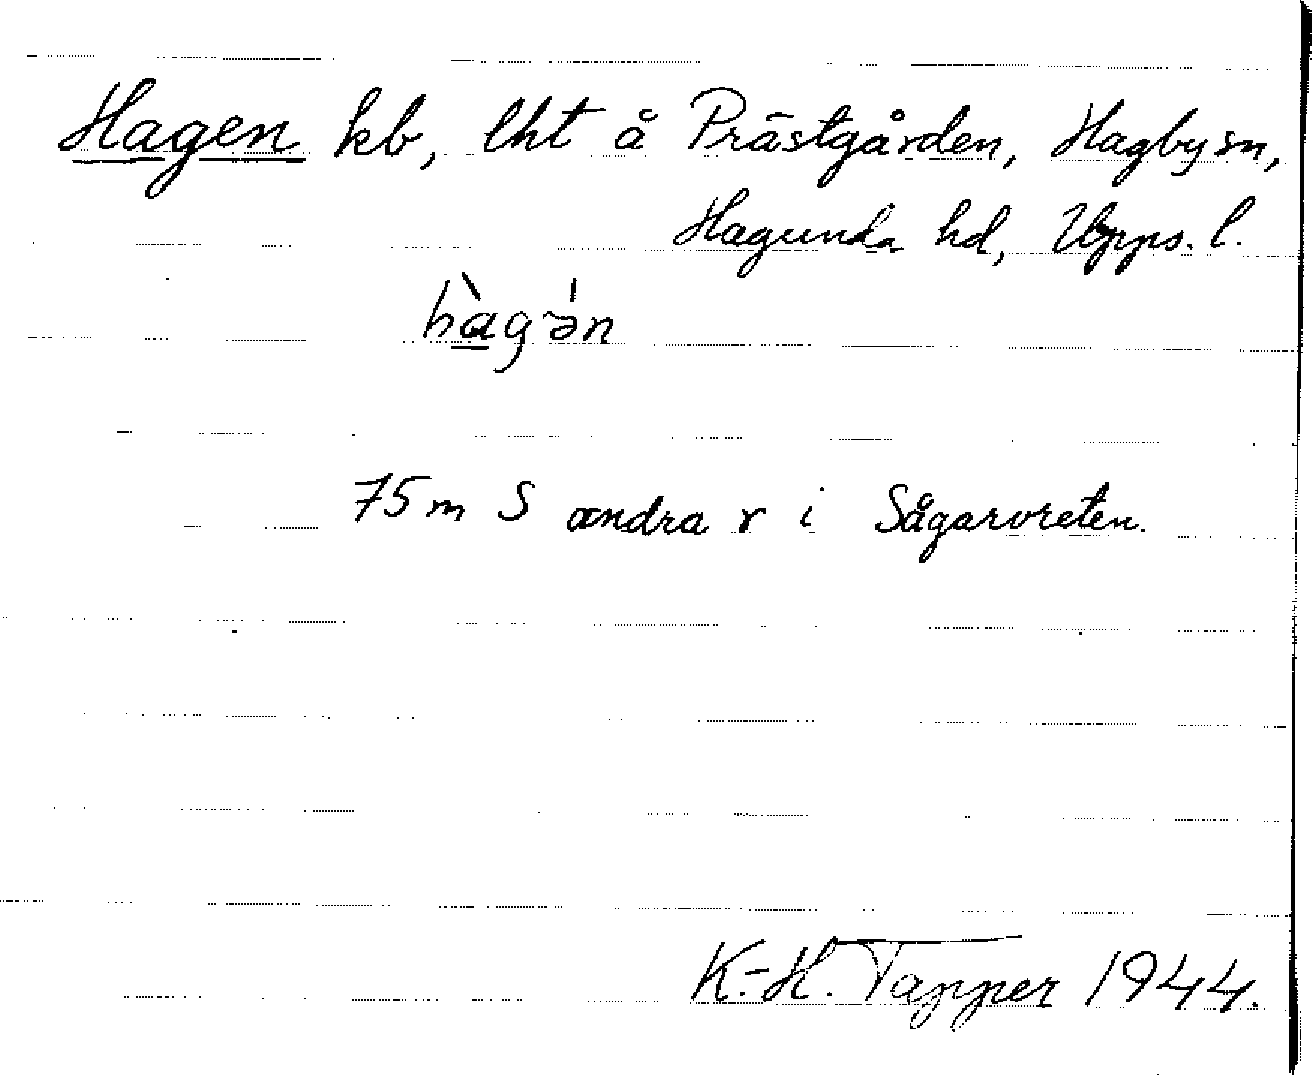 Hagen kb, lht å Prästgården, Hagby sn,
Hagunda hd, Upps. l.
hὰg-ə́n
75 m S andra r i Sågarvreten.
K.-H. Tapper 1944.